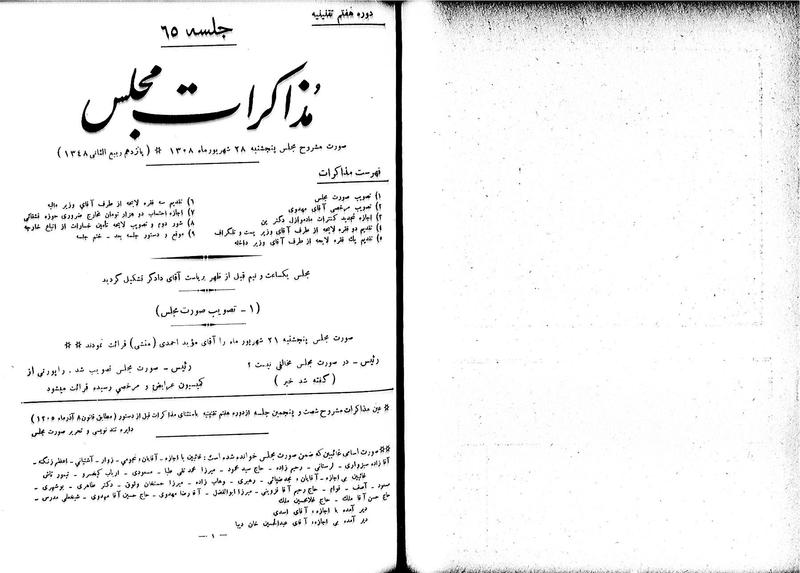 دوره هفتم تقنینیه
جلسه ٦٥
مذاکرات مجلس
صورت مشروح مجلس پنجشنبه ٢٨ شهریور ماه ١٣٠٨ * (پانزدهم ربیع الثانی ١٣٤٨)
فهرست مذاکرات
١) تصویب صورت مجلس
٢) تصویب مرخصی آقای مهدوی
٣) اجازه تجدید کنترات مادموازل دکتر بن
٤) تقدیم دو فقره لایحه از طرف آقای وزیر پست و تلگراف
٥) تقدیم یك فقره لایحه از طرف آقای وزیر داخله
٦) تقدیم سه فقره لایحه از طرف آقای وزیر مالیه
٧) اجازه احتساب دو هزار تومان مخارج ضروری حوزه قشقائی
٨) شور دوم و تصویب لایحه تأمین خسارات از اتباع خارجه
٩) موقع و دستور جلسه بعد - ختم جلسه
مجلس یکساعت و نیم قبل از ظهر بریاست آقای دادگر تشکیل گردید
(١ - تصویب صورت مجلس)
صورت مجلس پنجشنبه ٢١ شهریور ماه را آقای مؤید احمدی (منشی) قرائت نمودند **
رئیس - در صورت مجلس مخالفی نیست؟
(گفته شد خیر)
رئیس - صورت مجلس تصویب شد. راپورتی از
کمیسیون عرایض و مرخصی رسیده قرائت میشود
* عین مذاکرات مشروح شصت و پنجمین جلسه از دوره هفتم تقنینیه باستثنای مذاکرات قبل از دستور (مطابق قانون ٨ آذر ماه ١٣٠٥)
دایره تند نویسی و تحریر صورت مجلس
** صورت اسامی غائبین که ضمن صورت مجلس خوانده شده است: غائبین با اجازه - آقایان: نجومی - زوار - آشتیانی - اعظم زنگنه -
آقا زاده سبزواری - لرستانی - رحیم زاده - حاج سید محمود - میرزا محمد تقی طبا - مسعودی - ارباب کیخسرو - تیمور تاش
غائبین بی اجازه - آقایان: مجد ضیائی - رهبری - وهاب زاده - میرزا حسنخان وثوق - دکتر طاهری - بوشهری -
مسعود - آصف - قوام - حاج رحیم آقا قزوینی - میرزا ابوالفضل - آقا رضا مهدوی - حاج حسین آقا مهدوی - شیخعلی مدرس -
حاج حسن آقا ملك - حاج غلامحسین ملك
دیر آمده با اجازه: آقای اسدی
دیر آمده بی اجازه: آقای عبدالحسین خان دیبا
— ١ —